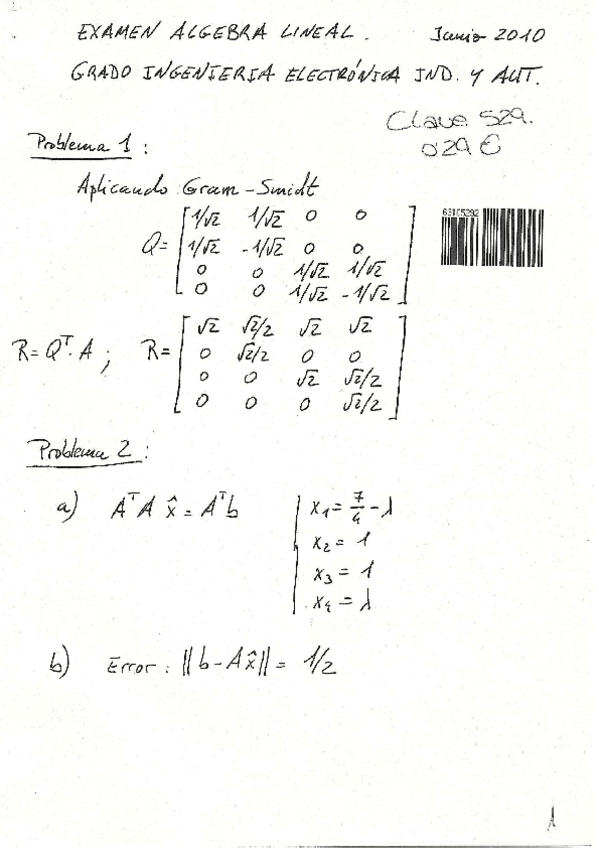 EXAMEN ALGEBRA LINEAL. Junio 2010
GRADO INGENIERIA ELECTRÓNICA IND. Y AUT.
Clave 529.
0'29 €
Problema 1:
Aplicando Gram-Smidt
63105292
Q= [ 1/√2 1/√2 0 0
1/√2 -1/√2 0 0
0 0 1/√2 1/√2
0 0 1/√2 -1/√2 ]
R= Qᵀ·A ; R= [ √2 √2/2 √2 √2
0 √2/2 0 0
0 0 √2 √2/2
0 0 0 √2/2 ]
Problema 2:
a) AᵀA x̂ = Aᵀb
x₁= 7/4 - λ
x₂= 1
x₃= 1
x₄= λ
b) Error: ||b-Ax̂||= 1/2
1